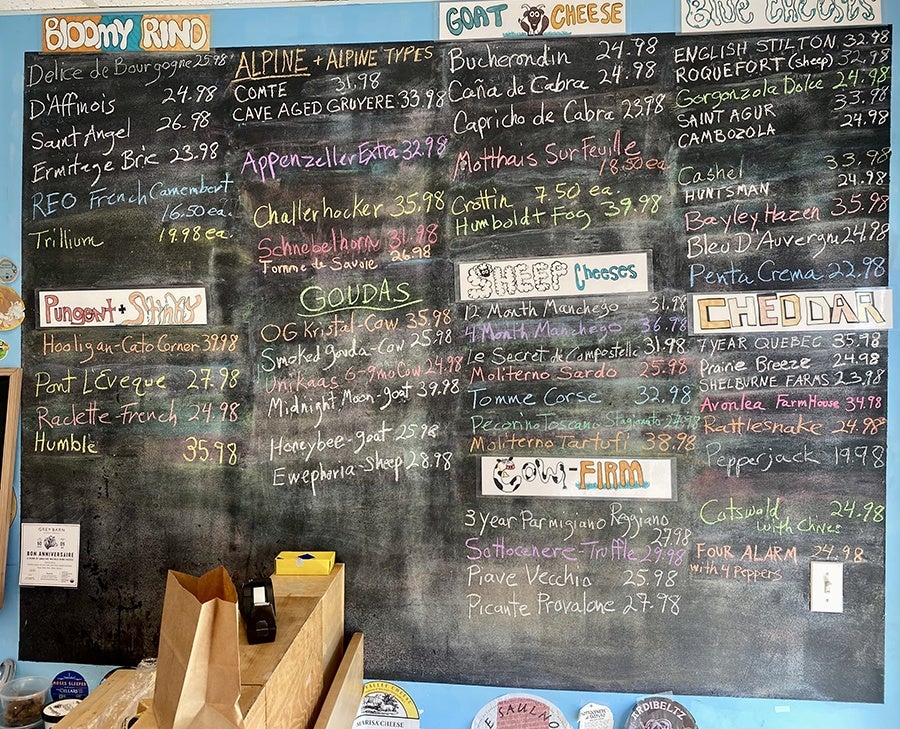 BLOOMY RIND
Delice de Bourgogne 25.98
D'Affinois 24.98
Saint Angel 26.98
Ermitage Brie 23.98
REO French Camembert
16.50 ea.
Trillium 19.98 ea.
PUNGENT + STINKY
Hooligan-Cato Corner 39.98
Pont L'Eveque 27.98
Raclette-French 24.98
Humble 35.98
ALPINE + ALPINE TYPES
COMTE 31.98
CAVE AGED GRUYERE 33.98
Appenzeller Extra 32.98
Challerhocker 35.98
Schnebelhorn 31.98
Tomme de Savoie 26.98
GOUDAS
OG Kristal-Cow 35.98
Smoked gouda-Cow 25.98
Unikaas 6-9mo Cow 24.98
Midnight Moon-goat 39.98
Honeybee-goat 25.98
Ewephoria-Sheep 28.98
GOAT CHEESE
Bucherondin 24.98
Caña de Cabra 24.98
Capricho de Cabra 23.98
Motthais Sur Feuille
18.50 ea.
Crottin 7.50 ea.
Humboldt Fog 39.98
SHEEP Cheeses
12 Month Manchego 31.98
4 Month Manchego 36.98
le Secret de Compostelle 31.98
Moliterno Sardo 25.98
Tomme Corse 32.98
Pecorino Toscano Stagionato
Moliterno Tartufi 38.98
COW-FIRM
3 year Parmigiano Reggiano
27.98
Sottocenere-Truffle 29.98
Piave Vecchio 25.98
Picante Provalone 27.98
BLUE CHEESES
ENGLISH STILTON 32.98
ROQUEFORT (sheep) 32.98
Gorgonzola Dolce 24.98
SAINT AGUR 33.98
CAMBOZOLA 24.98
Cashel 33.98
HUNTSMAN 24.98
Bayley Hazen 35.98
Bleu D'Auvergne 24.98
Penta Crema 22.98
CHEDDAR
7 YEAR QUEBEC 35.98
Prairie Breeze 24.98
SHELBURNE FARMS 23.98
Avonlea FarmHouse 34.98
Rattlesnake 24.98
Pepperjack 19.98
Cotswald 24.98
with Chives
FOUR ALARM 24.98
with 4 Peppers
GREY BARN
BON ANNIVERSAIRE
MOSES SLEEPER
CELLARS
MARISA CHEESE
LE SAULNO
ARDIBELTZ